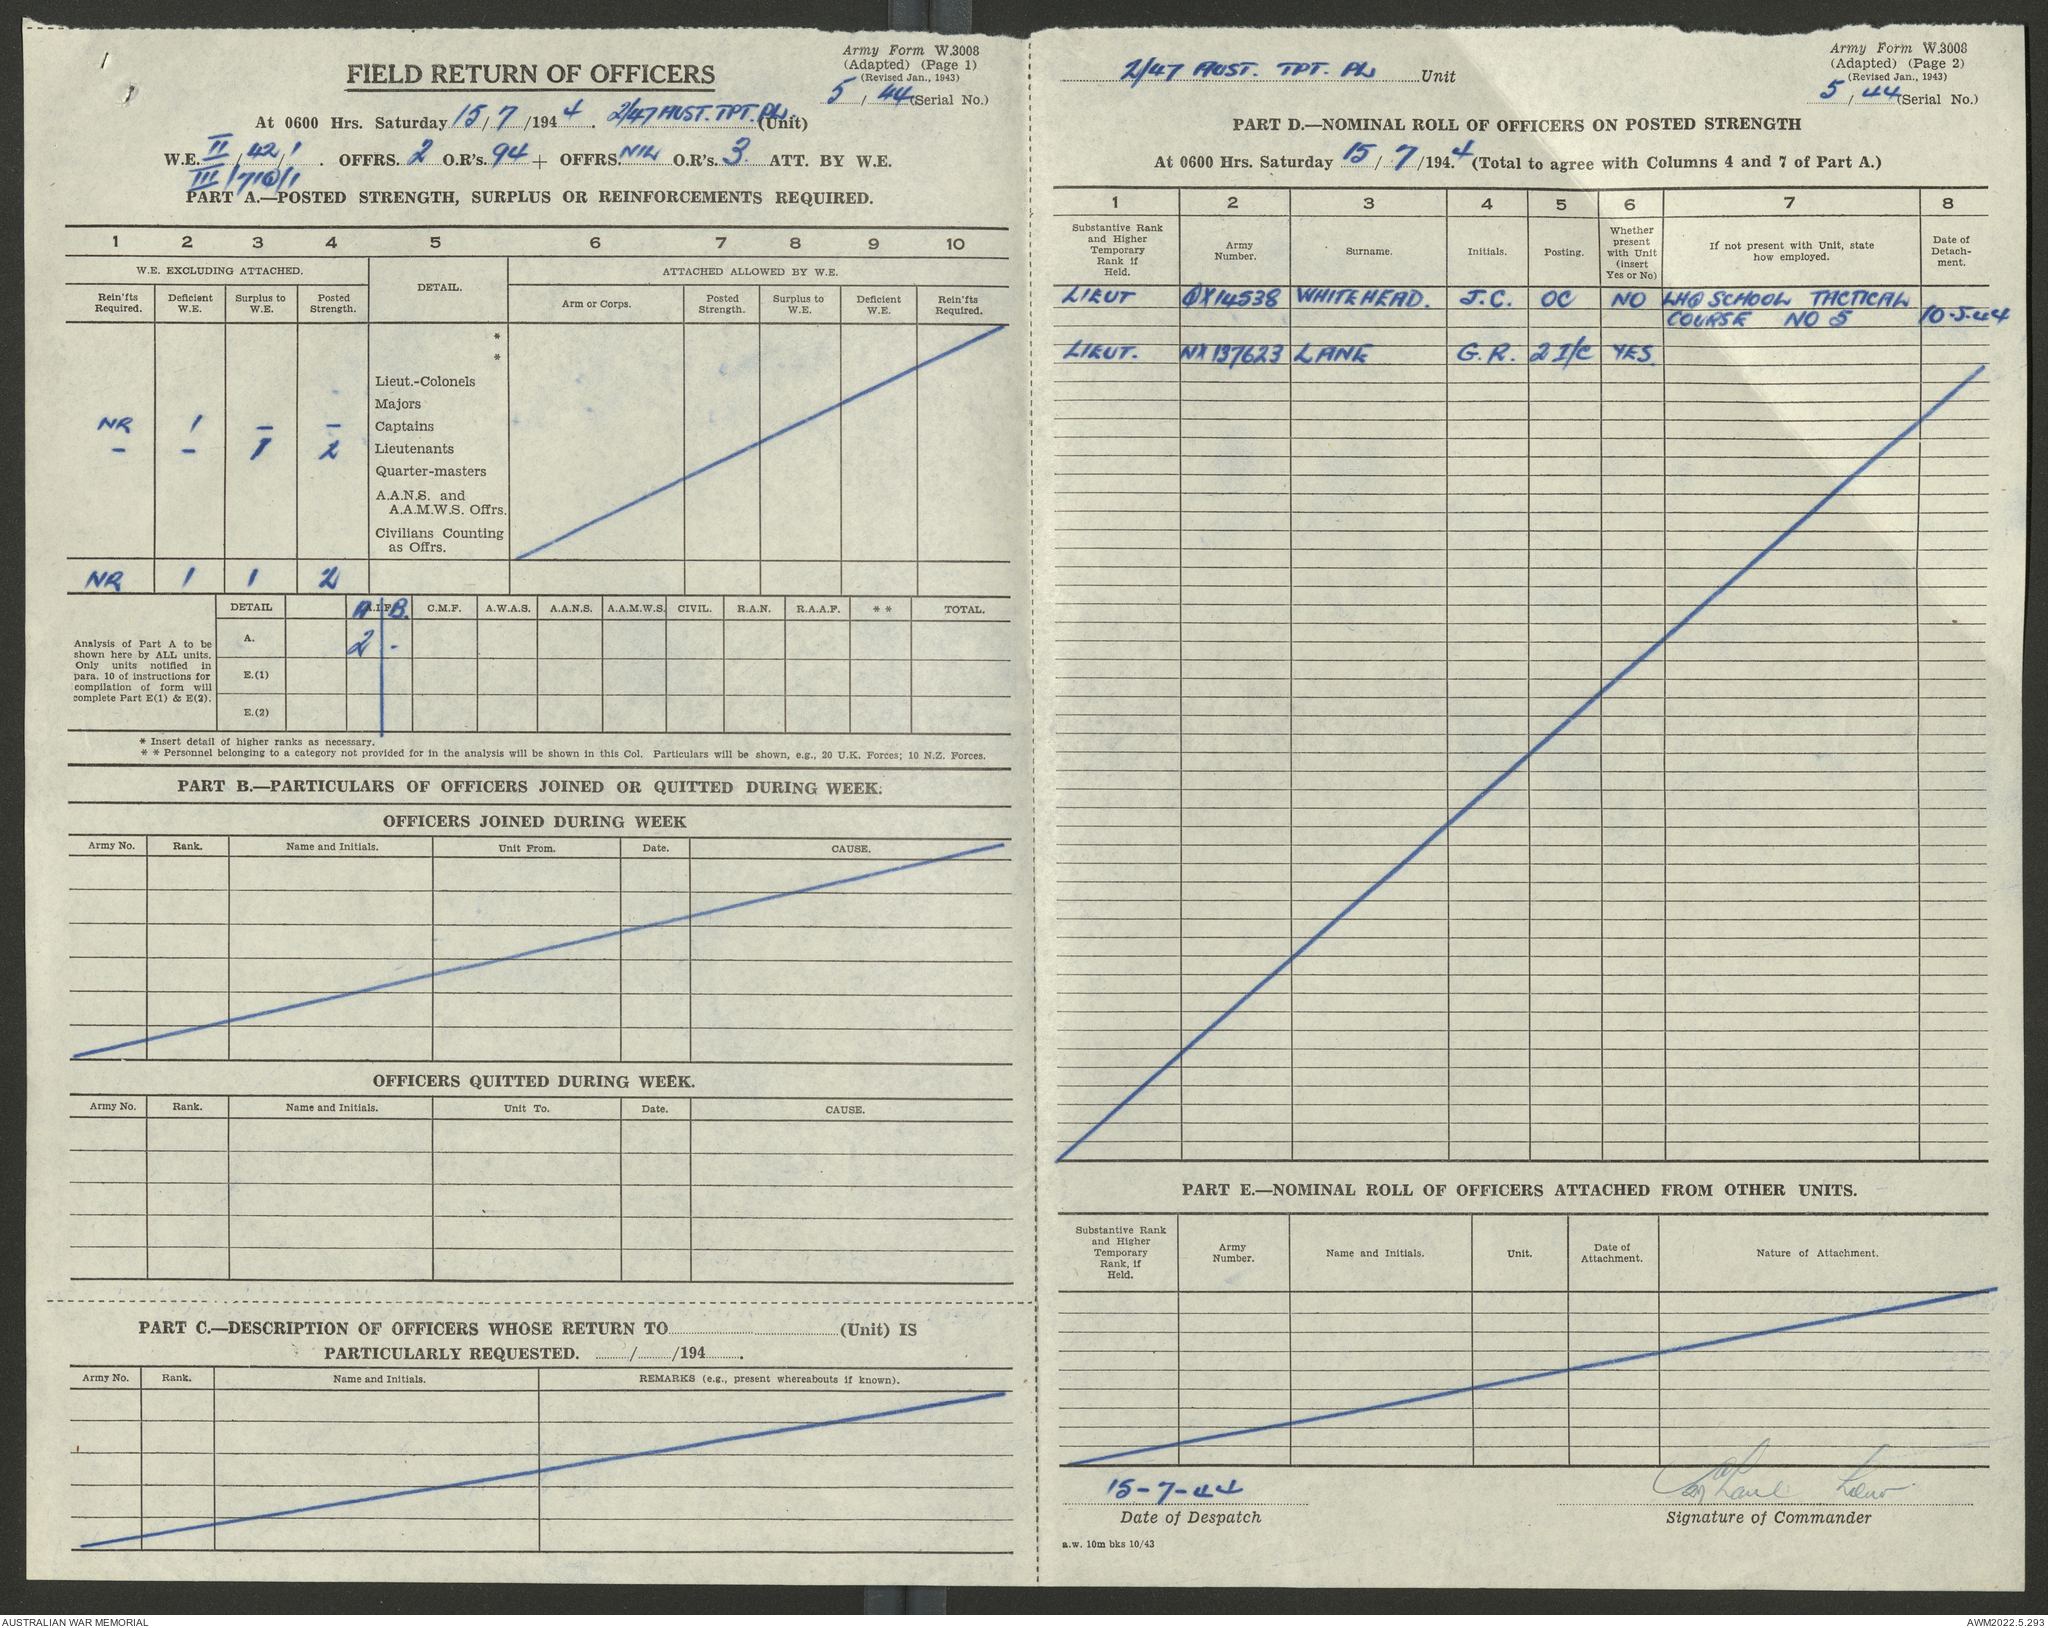 1
Army Form W.3008
(Adapted) (Page 1)
(Revised Jan., 1943)
5 / 44 (Serial No.)
FIELD RETURN OF OFFICERS
At 0600 Hrs. Saturday 15/7/1944. 2/47 AUST. TPT. PL. (Unit)
W.E. II/42/1. OFFRS. 2 O.R's. 94 + OFFRS. NIL O.R's. 3 ATT. BY W.E.
III/710/1
PART A.—POSTED STRENGTH, SURPLUS OR REINFORCEMENTS REQUIRED.
1 2 3 4 5 6 7 8 9 10
W.E. EXCLUDING ATTACHED. DETAIL. ATTACHED ALLOWED BY W.E.
Rein'fts Required. Deficient W.E. Surplus to W.E. Posted Strength. Arm or Corps. Posted Strength. Surplus to W.E. Deficient W.E. Rein'fts Required.
*
*
Lieut.-Colonels
Majors
NR 1 – – Captains
– – 1 2 Lieutenants
Quarter-masters
A.A.N.S. and
A.A.M.W.S. Offrs.
Civilians Counting
as Offrs.
NR 1 1 2
DETAIL A.I.F. A B. C.M.F. A.W.A.S. A.A.N.S. A.A.M.W.S. CIVIL. R.A.N. R.A.A.F. * * TOTAL.
Analysis of Part A to be
shown here by ALL units.
Only units notified in
para. 10 of instructions for
compilation of form will
complete Part E(1) & E(2).
A. 2 -
E.(1)
E.(2)
* Insert detail of higher ranks as necessary.
* * Personnel belonging to a category not provided for in the analysis will be shown in this Col. Particulars will be shown, e.g., 20 U.K. Forces; 10 N.Z. Forces.
PART B.—PARTICULARS OF OFFICERS JOINED OR QUITTED DURING WEEK.
OFFICERS JOINED DURING WEEK
Army No. Rank. Name and Initials. Unit From. Date. CAUSE.
OFFICERS QUITTED DURING WEEK.
Army No. Rank. Name and Initials. Unit To. Date. CAUSE.
PART C.—DESCRIPTION OF OFFICERS WHOSE RETURN TO (Unit) IS
PARTICULARLY REQUESTED. / /194 .
Army No. Rank. Name and Initials. REMARKS (e.g., present whereabouts if known).
2/47 AUST. TPT. PL Unit
Army Form W.3008
(Adapted) (Page 2)
(Revised Jan., 1943)
5 / 44 (Serial No.)
PART D.—NOMINAL ROLL OF OFFICERS ON POSTED STRENGTH
At 0600 Hrs. Saturday 15/7/1944 (Total to agree with Columns 4 and 7 of Part A.)
1 2 3 4 5 6 7 8
Substantive Rank and Higher Temporary Rank if Held. Army Number. Surname. Initials. Posting. Whether present with Unit (insert Yes or No) If not present with Unit, state how employed. Date of Detach-ment.
LIEUT QX14538 WHITEHEAD. J.C. OC NO LHQ SCHOOL TACTICAL
COURSE NO 5 10-5-44
LIEUT. NX137623 LANE G.R. 2 I/C YES.
PART E.—NOMINAL ROLL OF OFFICERS ATTACHED FROM OTHER UNITS.
Substantive Rank and Higher Temporary Rank, if Held. Army Number. Name and Initials. Unit. Date of Attachment. Nature of Attachment.
15-7-44
Date of Despatch Signature of Commander
a.w. 10m bks 10/43
AUSTRALIAN WAR MEMORIAL AWM2022.5.293